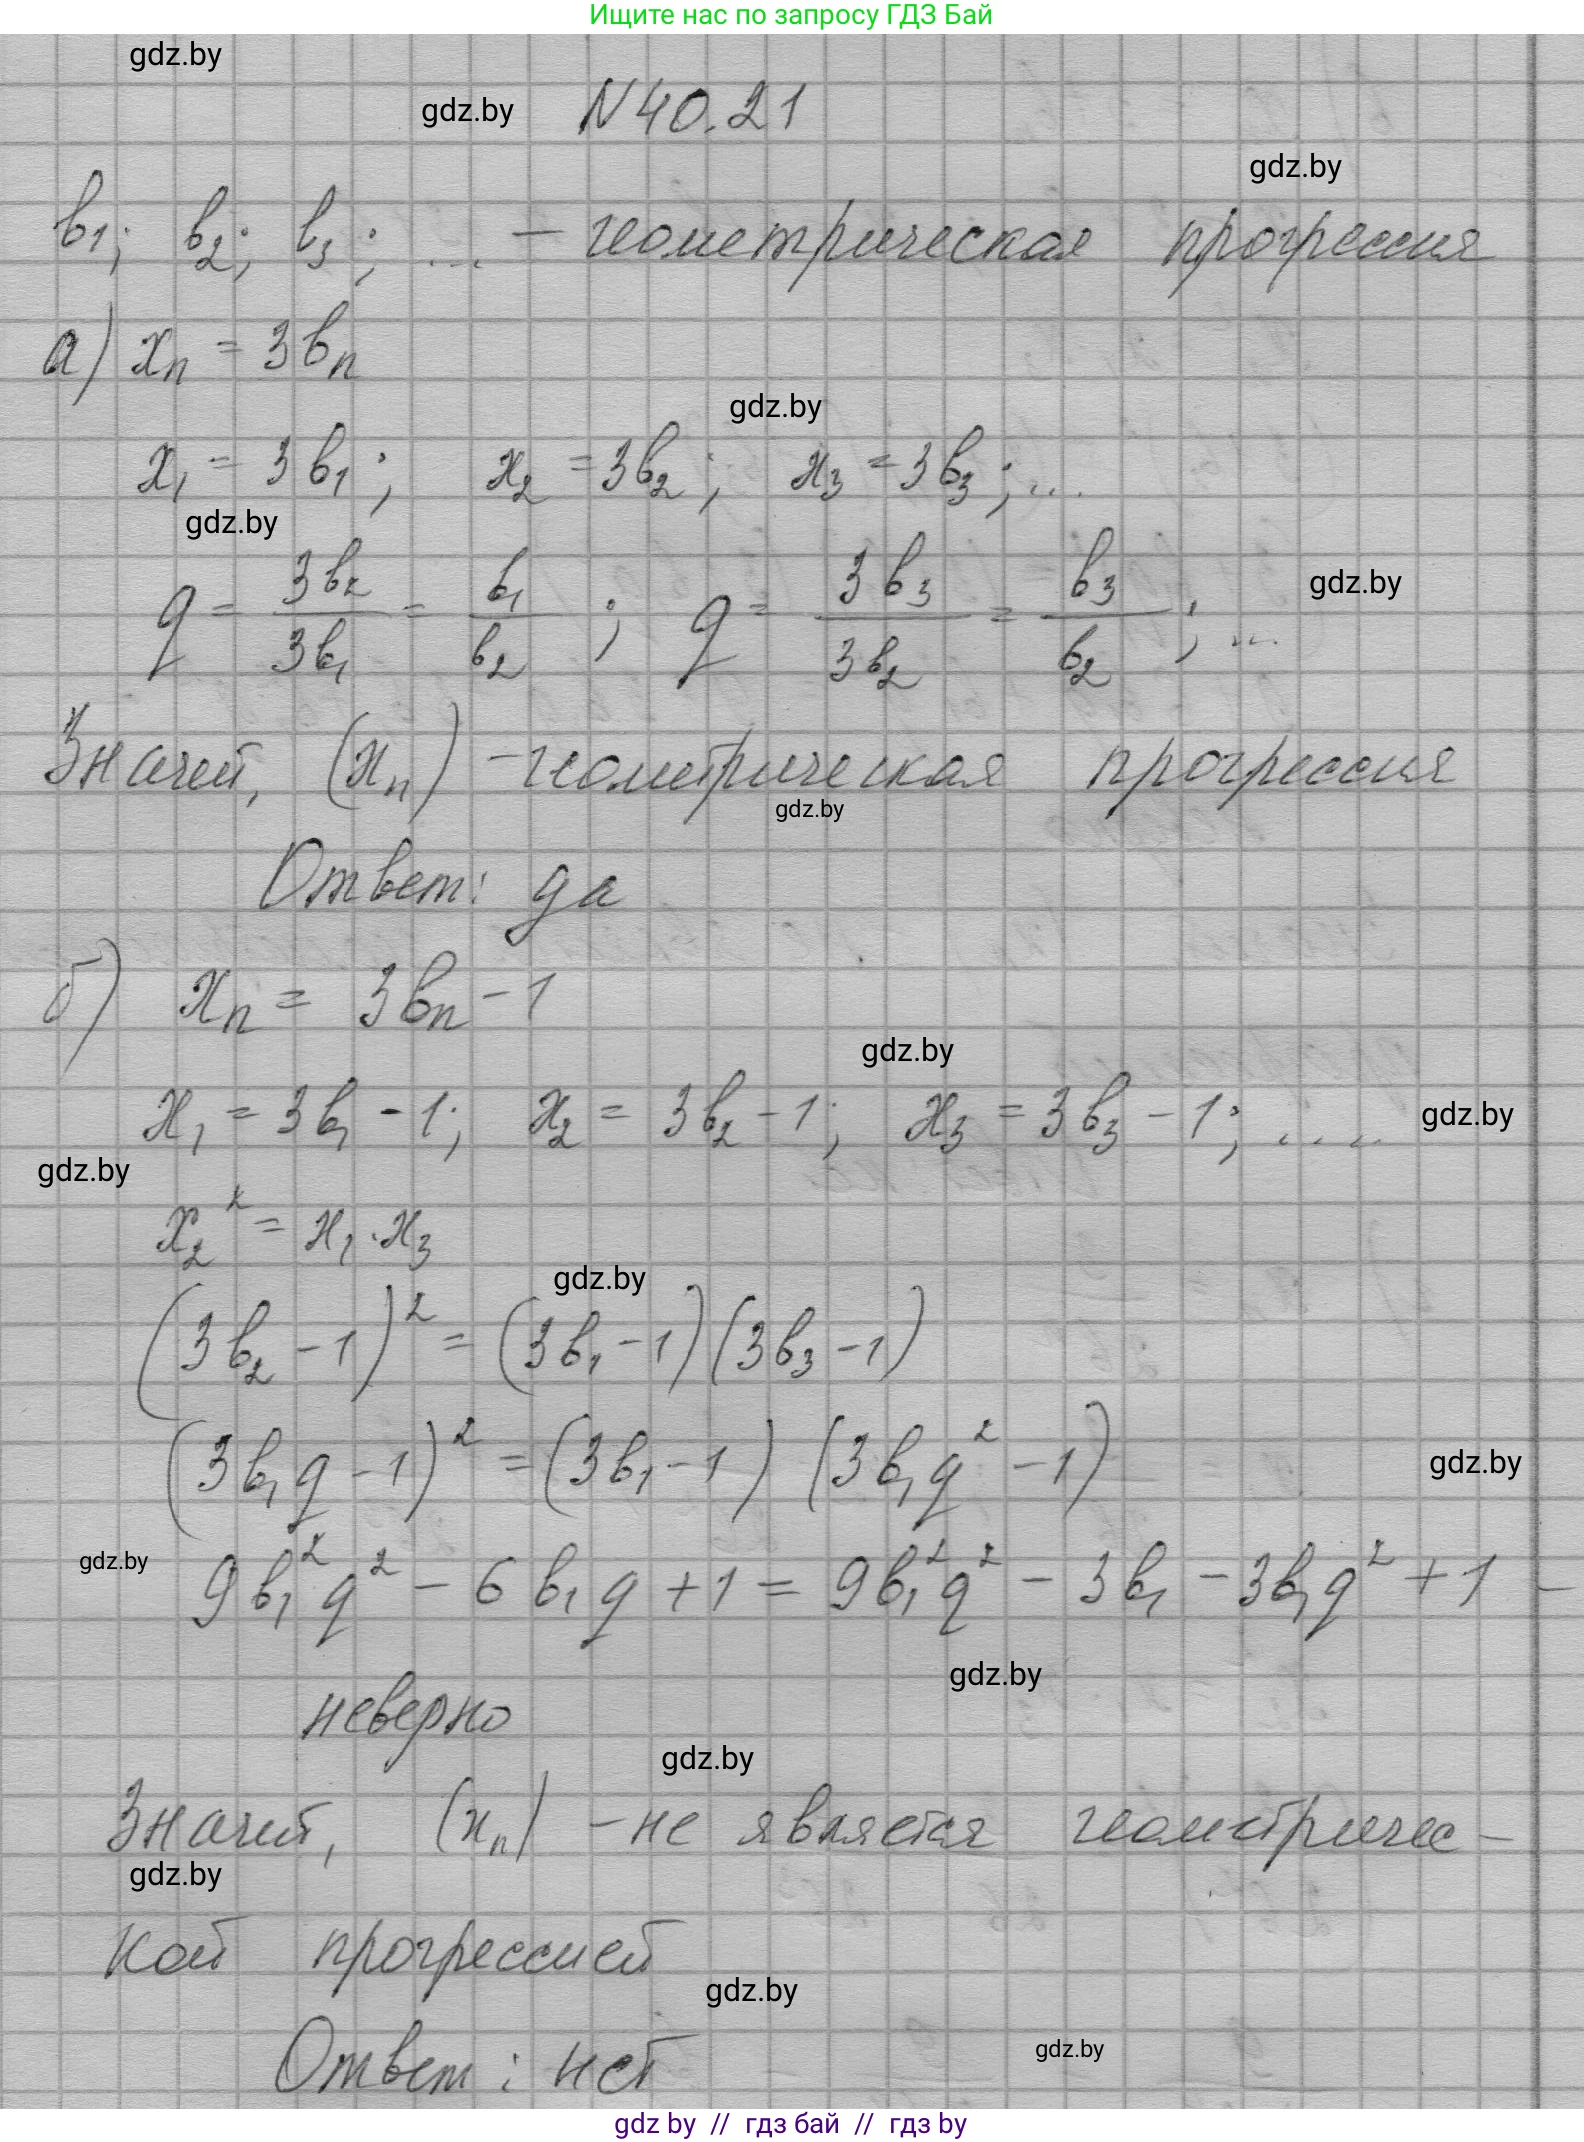 Ищите нас по запросу ГДЗ Бай
gdz.by
gdz.by
N 40.21
gdz.by
b₁; b₂; b₃; ... – геометрическая прогрессия
а) xₙ = 3bₙ
gdz.by
x₁ = 3b₁; x₂ = 3b₂; x₃ = 3b₃; ...
gdz.by
q = 3b₂/3b₁ = b₁/b₂; q = 3b₃/3b₂ = b₃/b₂; ...
gdz.by
Значит, (xₙ) – геометрическая прогрессия
gdz.by
Ответ: да
б) xₙ = 3bₙ – 1
gdz.by
x₁ = 3b₁ – 1; x₂ = 3b₂ – 1; x₃ = 3b₃ – 1; ....
gdz.by
gdz.by
x₂² = x₁·x₃
gdz.by
(3b₂ – 1)² = (3b₁ – 1)(3b₃ – 1)
(3b₁q – 1)² = (3b₁ – 1)(3b₁q² – 1)
gdz.by
gdz.by
9b₁²q² – 6b₁q + 1 = 9b₁²q² – 3b₁ – 3b₁q² + 1 –
gdz.by
неверно
gdz.by
Значит, (xₙ) – не является геометричес–
gdz.by
кой прогрессией
gdz.by
Ответ: нет
gdz.by
gdz by // гдз бай // гдз by